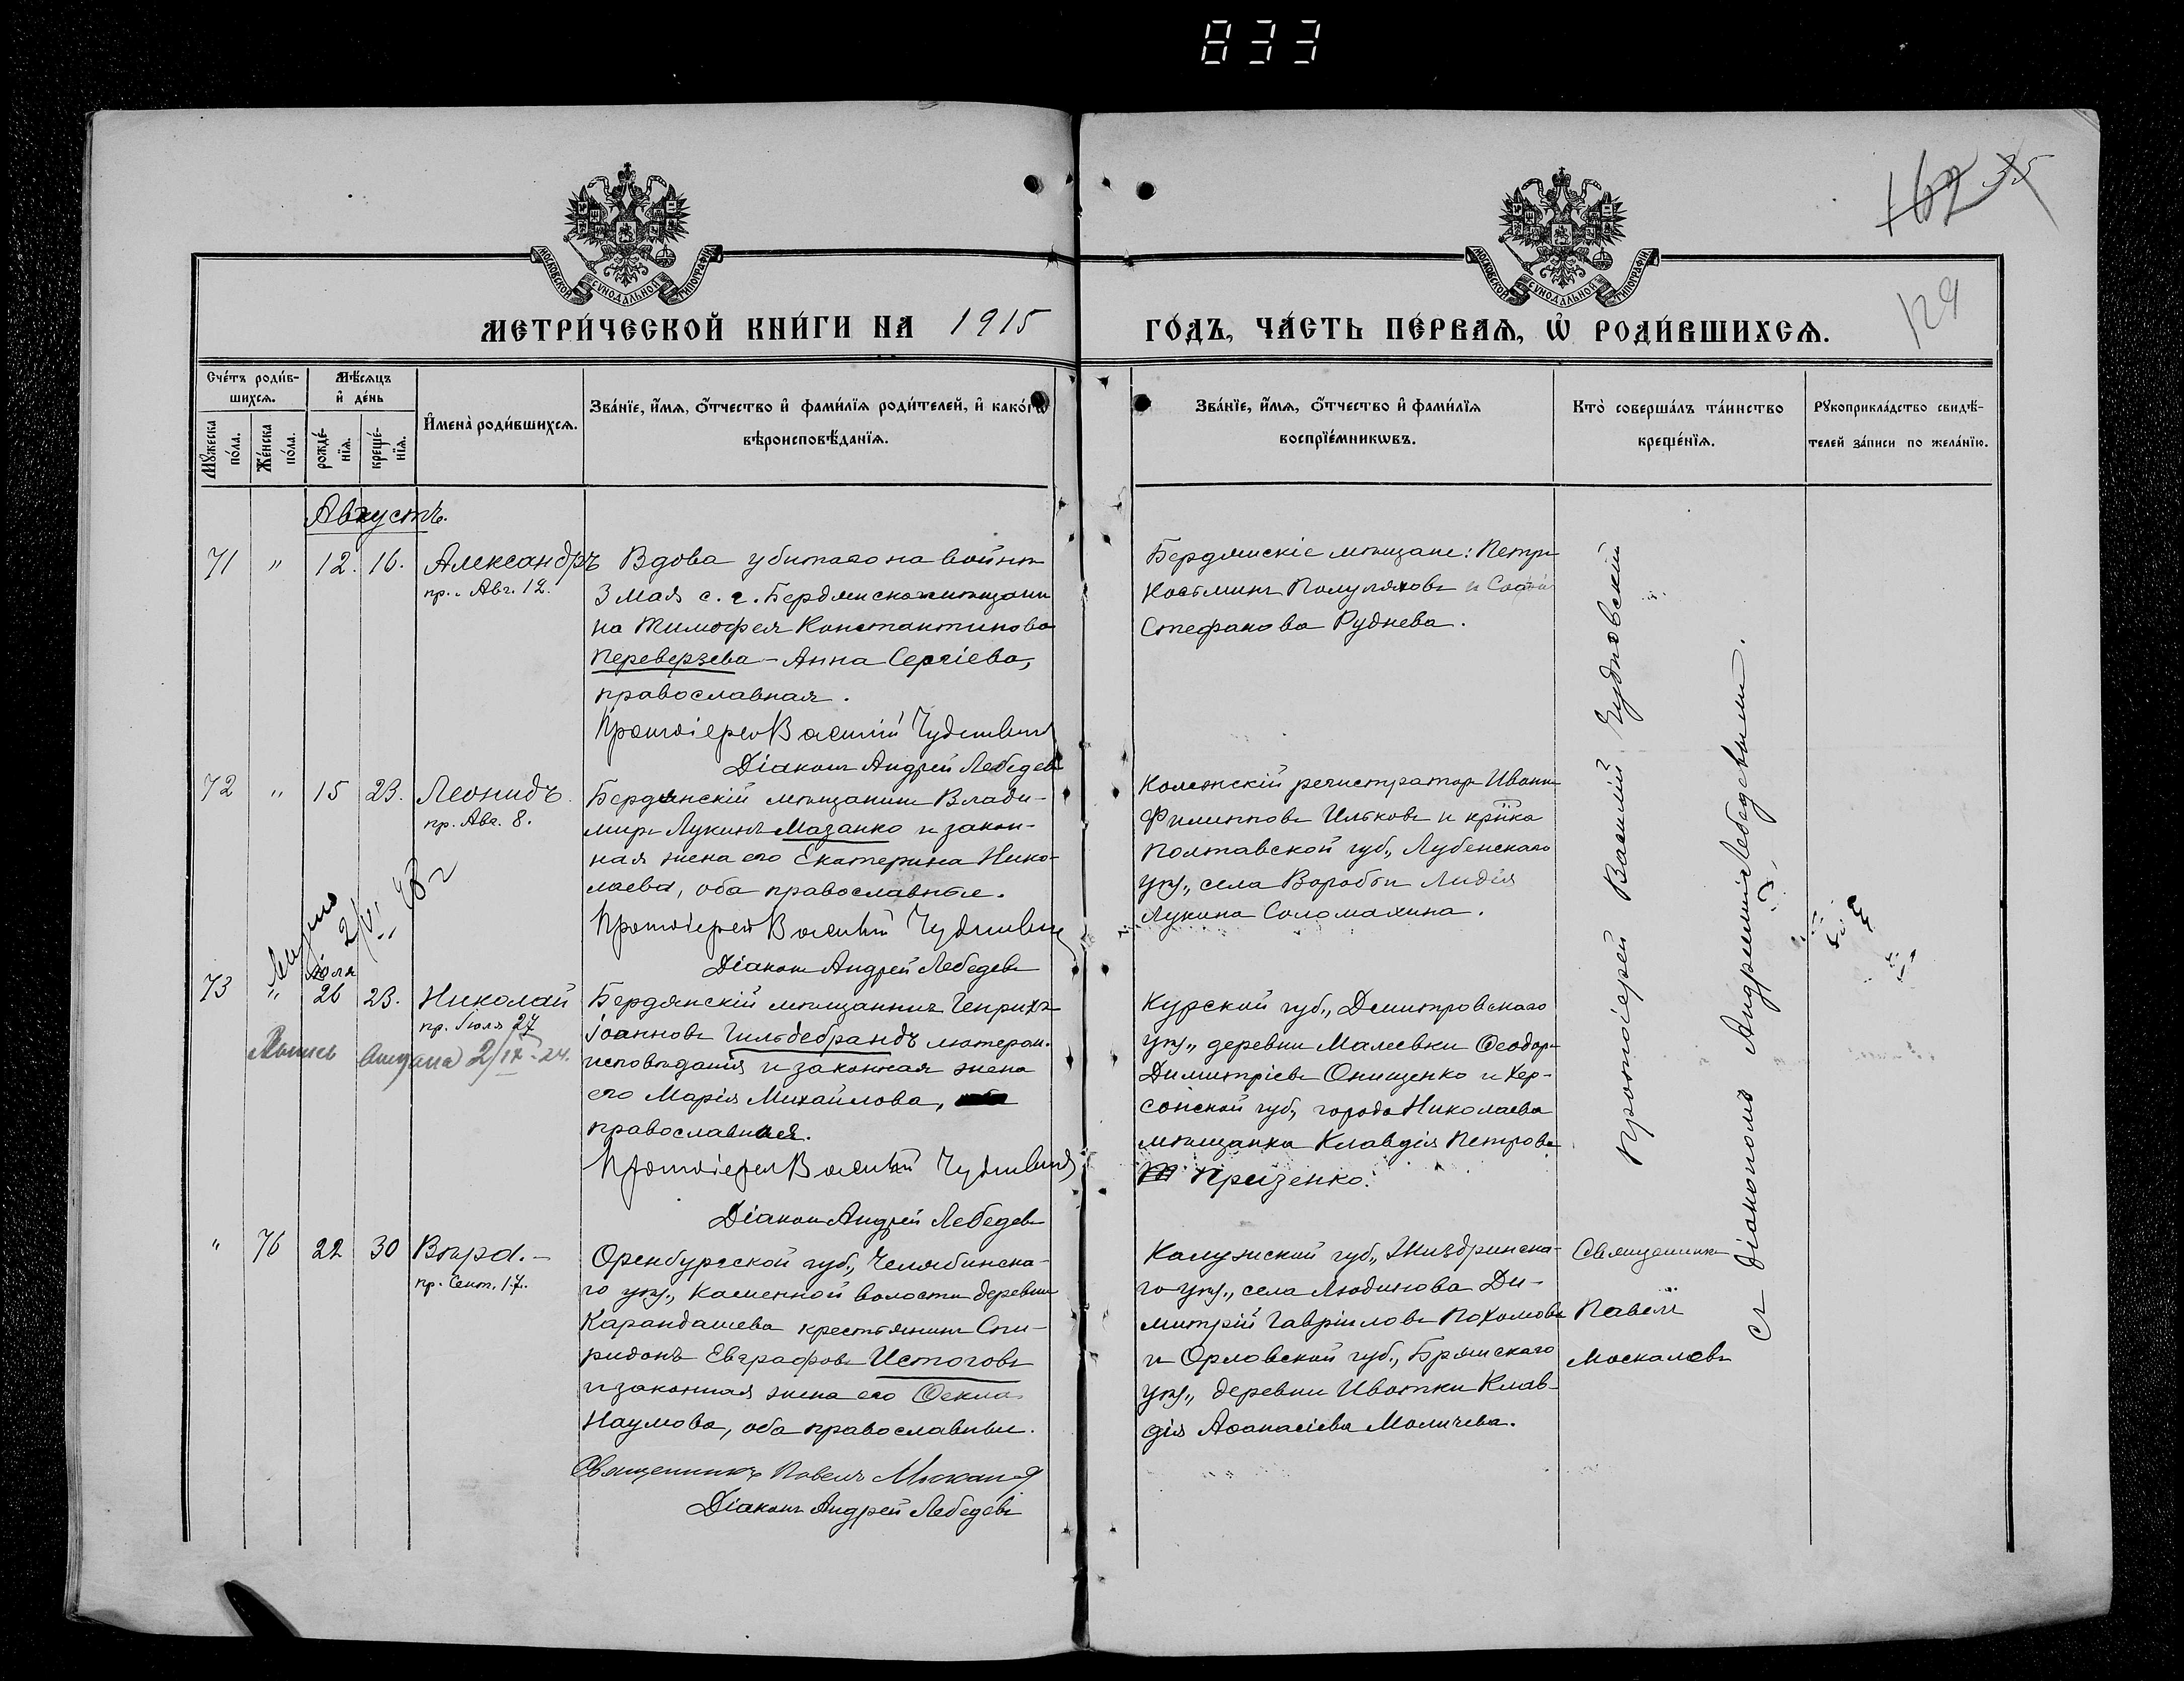 833
162 35
129
МОСКОВСКОЙ СѴНОДАЛЬНОЙ ТИПОГРАФІИ
МОСКОВСКОЙ СѴНОДАЛЬНОЙ ТИПОГРАФІИ
МЕТРИ́ЧЕСКОЙ КНИ́ГИ НА 1915
ГО́ДЪ, ЧА́СТЬ ПЕ́РВАѦ, Ѿ РОДИ́ВШИХСѦ.
Сче́тъ роди́в-
шихсѧ.
Мꙋ́жеска
по́ла.
Же́нска
по́ла.
Мѣ́сѧцъ
и҆ де́нь
рожде́-
нїѧ.
креще́-
нїѧ.
И҆мена̀ роди́вшихсѧ.
Зва́нїе, и҆́мѧ, ѻ҆́тчество и҆ фами́лїѧ роди́телей, и҆ како́гѡ
вѣроисповѣ́данїѧ.
Зва́нїе, и҆́мѧ, ѻ҆́тчество и҆ фами́лїѧ
воспрїе́мникѡвъ.
Кто̀ соверша́лъ та́инство
креще́нїѧ.
Рꙋкоприкла́дство свидѣ́-
телей за́писи по жела́нїю.
Августъ.
71 " 12. 16. Александръ
пр. Авг. 12.
Вдова убитаго на войнѣ
3 мая с. г. Бердянскаго мѣщани
на Тимофея Константинова
Переверзева – Анна Сергіева,
православная.
Протоіерей Василій Чудновскій
Діаконъ Андрей Лебедевъ
Бердянскіе мѣщане: Петръ
Косьминъ Полуляховъ и Софія
Стефанова Руднева.
72 " 15 23. Леонидъ.
пр. Авг. 8.
Бердянскій мѣщанинъ Влади-
миръ Лукинъ Мазанко и закон-
ная жена его Екатерина Нико-
лаева, оба православные.
Протоіерей Василій Чудновскій
Діаконъ Андрей Лебедевъ
Коллежскій регистраторъ Иванъ
Филипповъ Ильковъ и кр̄тка
Полтавской губ., Лубенскаго
уѣз., села Воробьи Лидія
Лукина Соломахина.
2/VI 48 г
73 " Іюля 26 23. Николай
пр. Іюля 27
2/IX - 24.
Бердянскій мѣщанинъ Генрихъ
Іоанновъ Гильдебрандъ лютеран.
исповѣданія и законная жена
его Марія Михайлова,
православная.
Протоіерей Василій Чудновскій
Діаконъ Андрей Лебедевъ
Курской губ., Димитровскаго
уѣз., деревни Малеевки Ѳеодоръ
Димитріевъ Онищенко и Хер-
сонской губ., города Николаева
мѣщанка Клавдія Петрова
Призенко.
" 76 22 30 Вѣра. –
пр. Сент. 17.
Оренбургской губ., Челябинска-
го уѣз., Каменной волости деревни
Карандашева крестьянинъ Спи-
ридонъ Евграфовъ Истоговъ
и законная жена его Ѳекла
Наумова, оба православные.
Священникъ Павелъ Москалевъ
Діаконъ Андрей Лебедевъ
Калужской губ., Жиздринска-
го уѣз., села Людинова Ди-
митрій Гавріиловъ Пахомовъ
и Орловской губ., Брянскаго
уѣз., деревни Ивотки Клав-
дія Аѳанасіева Моличева.
Священникъ
Павелъ
Москалевъ
Протоіерей Василій Чудновскій
съ діакономъ Андреемъ Лебедевымъ.